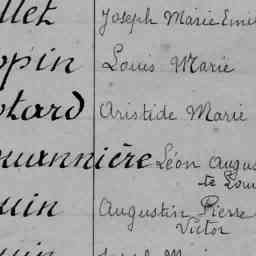 llet Joseph Marie Emi
ppin Louis Marie
otard Aristide Marie
ouannière Léon Augus
te Loui
uin Augustin Pierre
Victor
uin